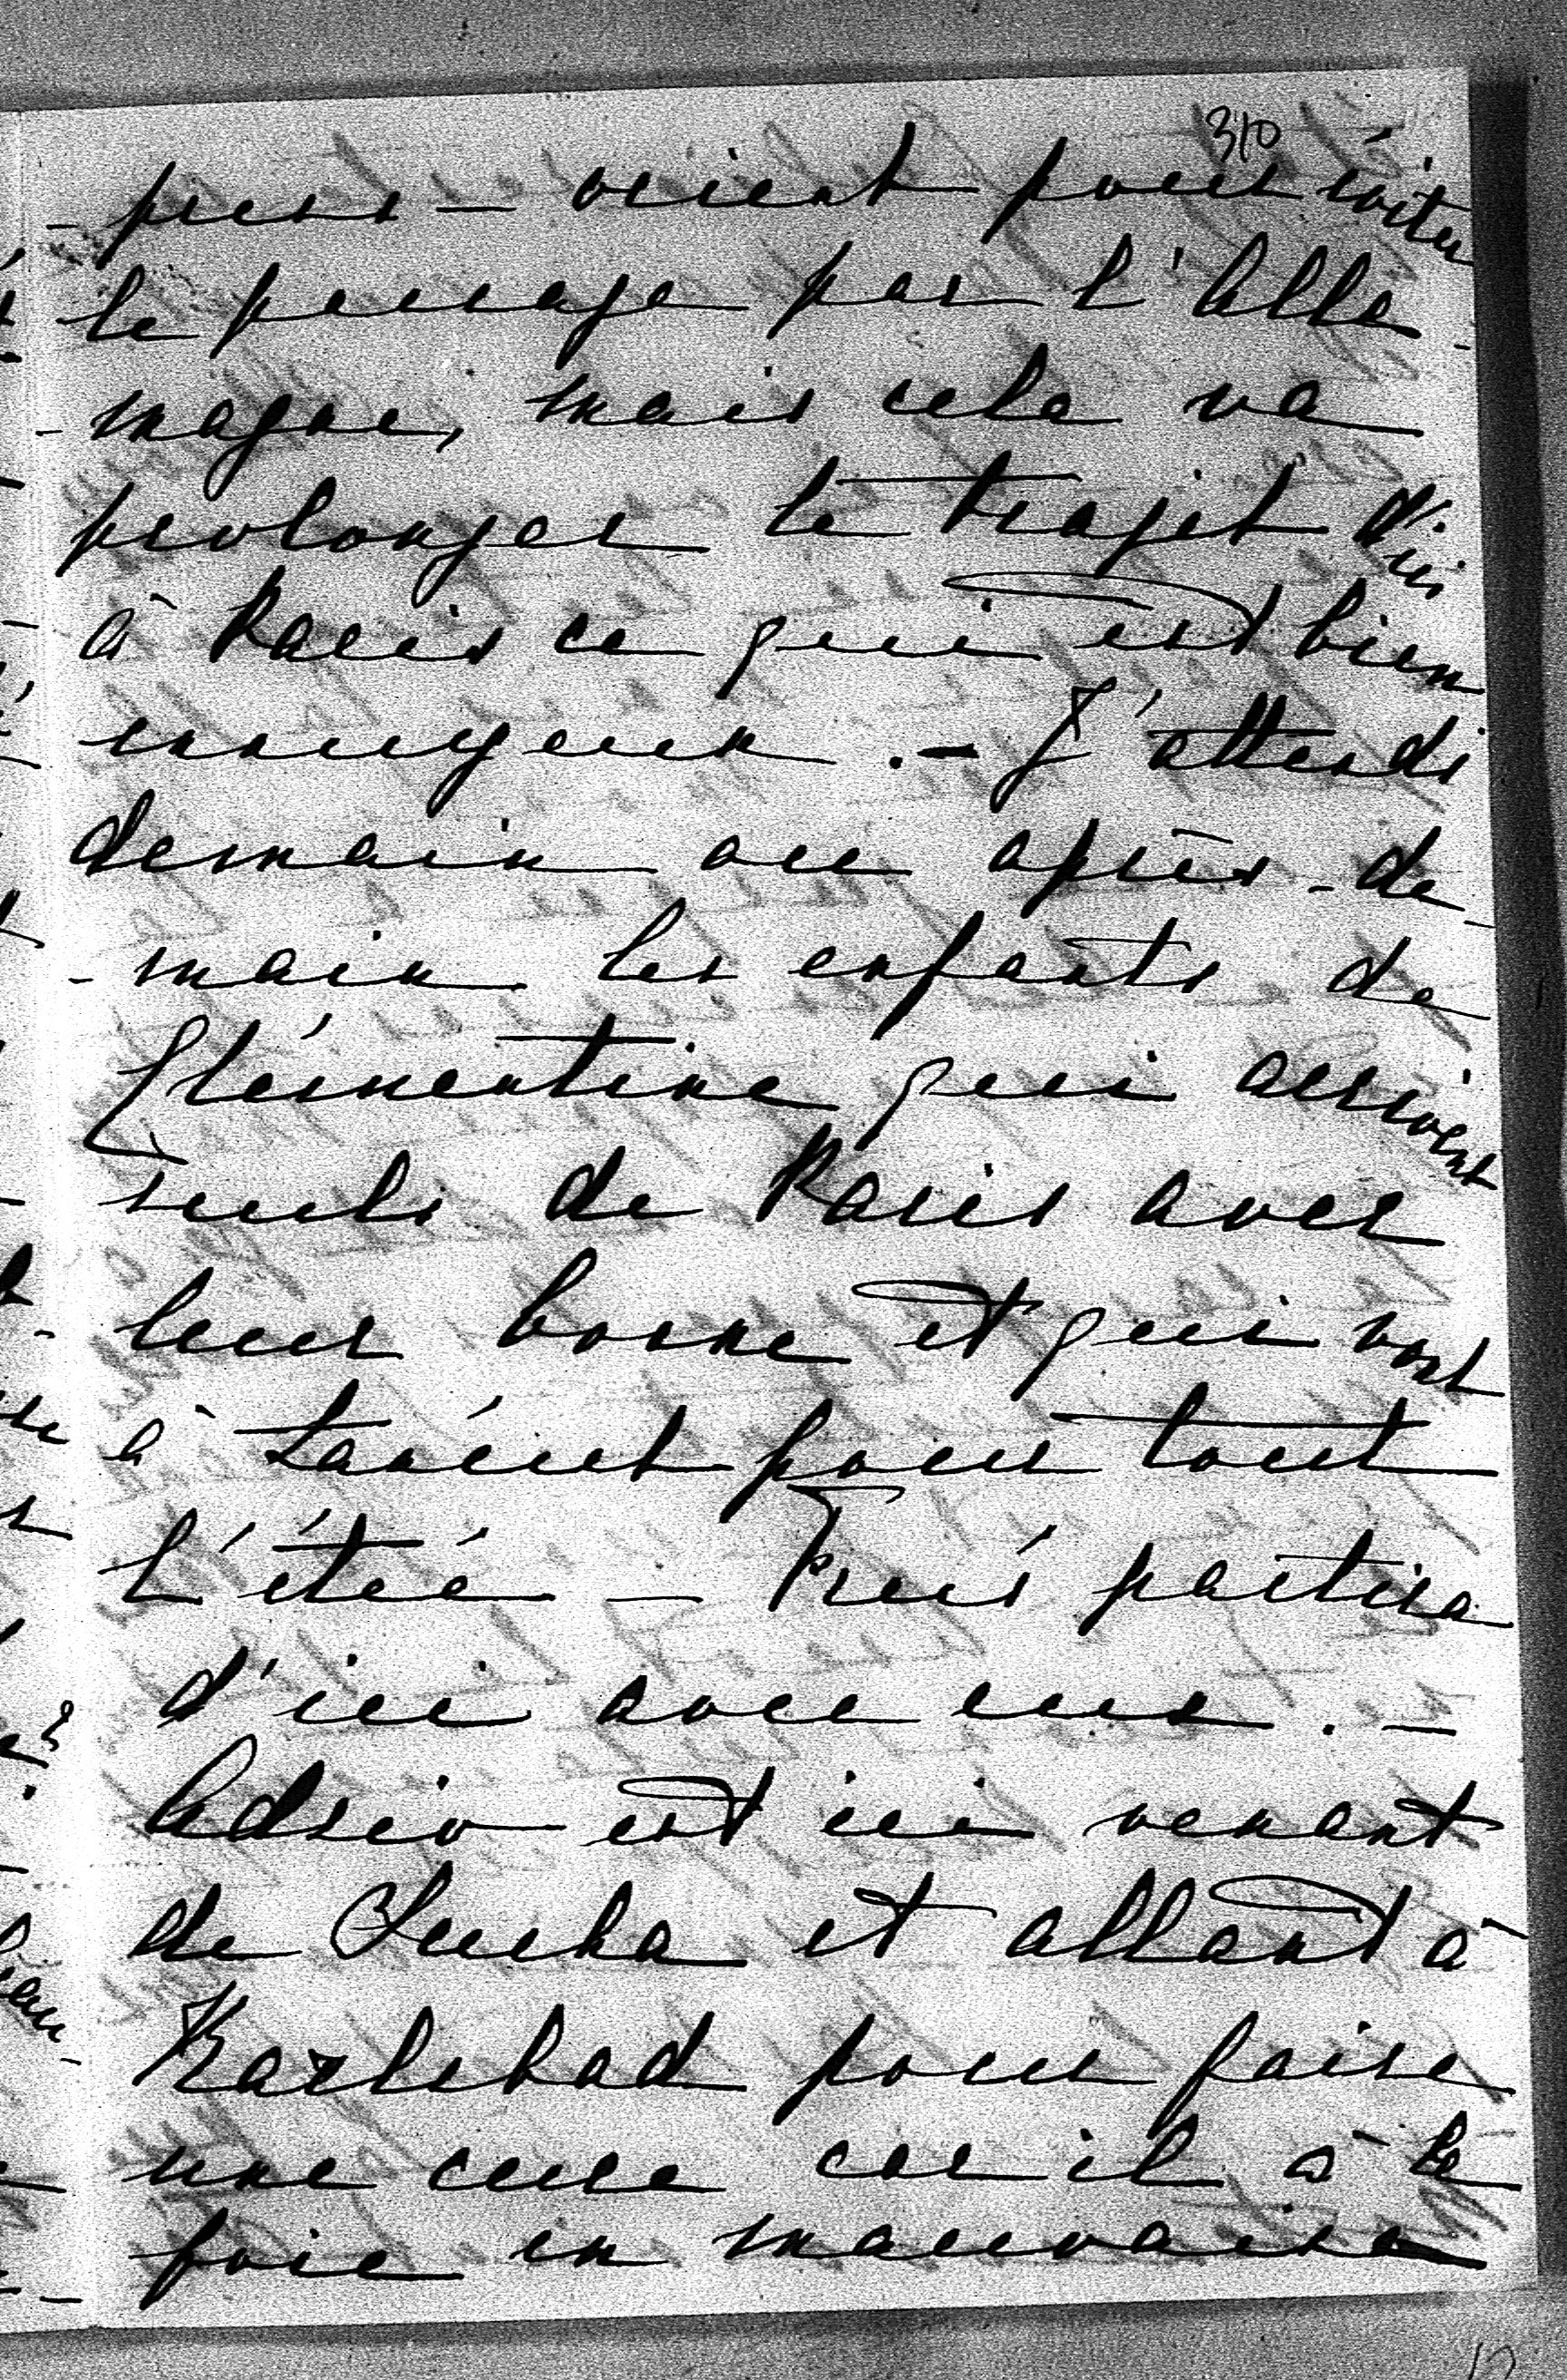 310
- press - orient pour éviter
le passage par l'Alle-
- magne, mais cela va
prolonger le trajet d'ici
à Paris ce qui est bien
ennuyeux. - J'attends
demain ou après-de-
- main les enfants de
Clémentine qui arrivent
seuls de Paris avec
leur bonne et qui vont
à pour tout
l'été - partira
d'ici avec eux. -
est ici venant
de et allant à
Karlsbad pour faire
une cure car il a le
foie en mauvaise